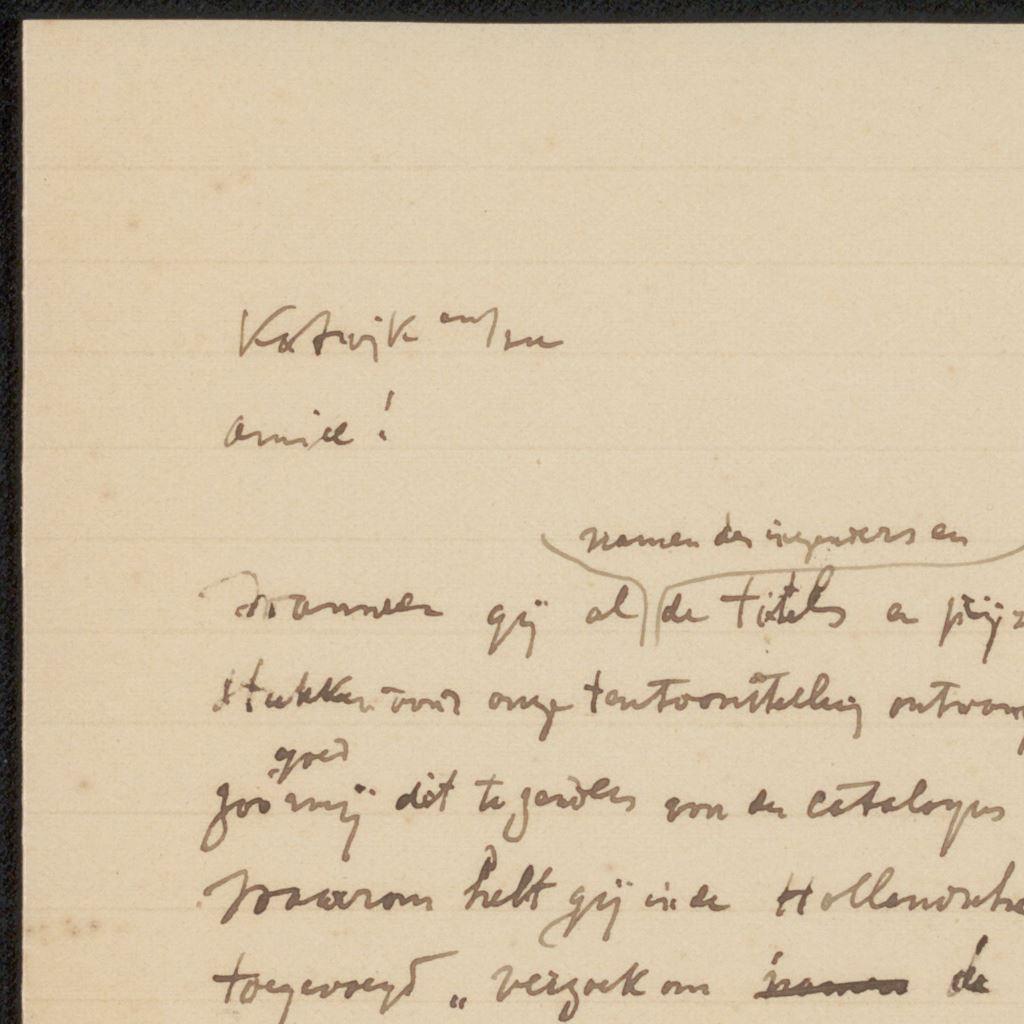 Katwijk an/zee
Amice!
namen der inzenders en
Wanneer gij al de titels en prijz
stukken voor onze tentoonstelling ontvang
goed
zoo mij dit te zenden voor den catalogus
Waarom hebt gij in de Hollandsche
toegevoegd „ verzoek om namen de